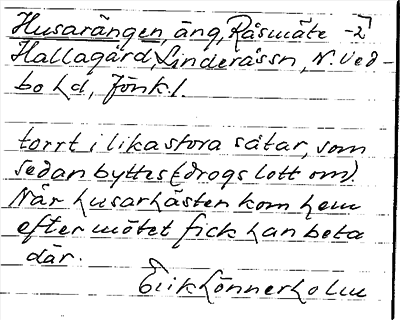 Husarängen, äng, Råsmäte -2
Hallagård, Linderåssn, N. Ved-
bo hd, Jönk.l.
torrt i lika stora såtar, som
sedan byttes (drogs lott om).
När husarhästen kom hem
efter mötet fick han beta
där.
Erik Lönnerholm